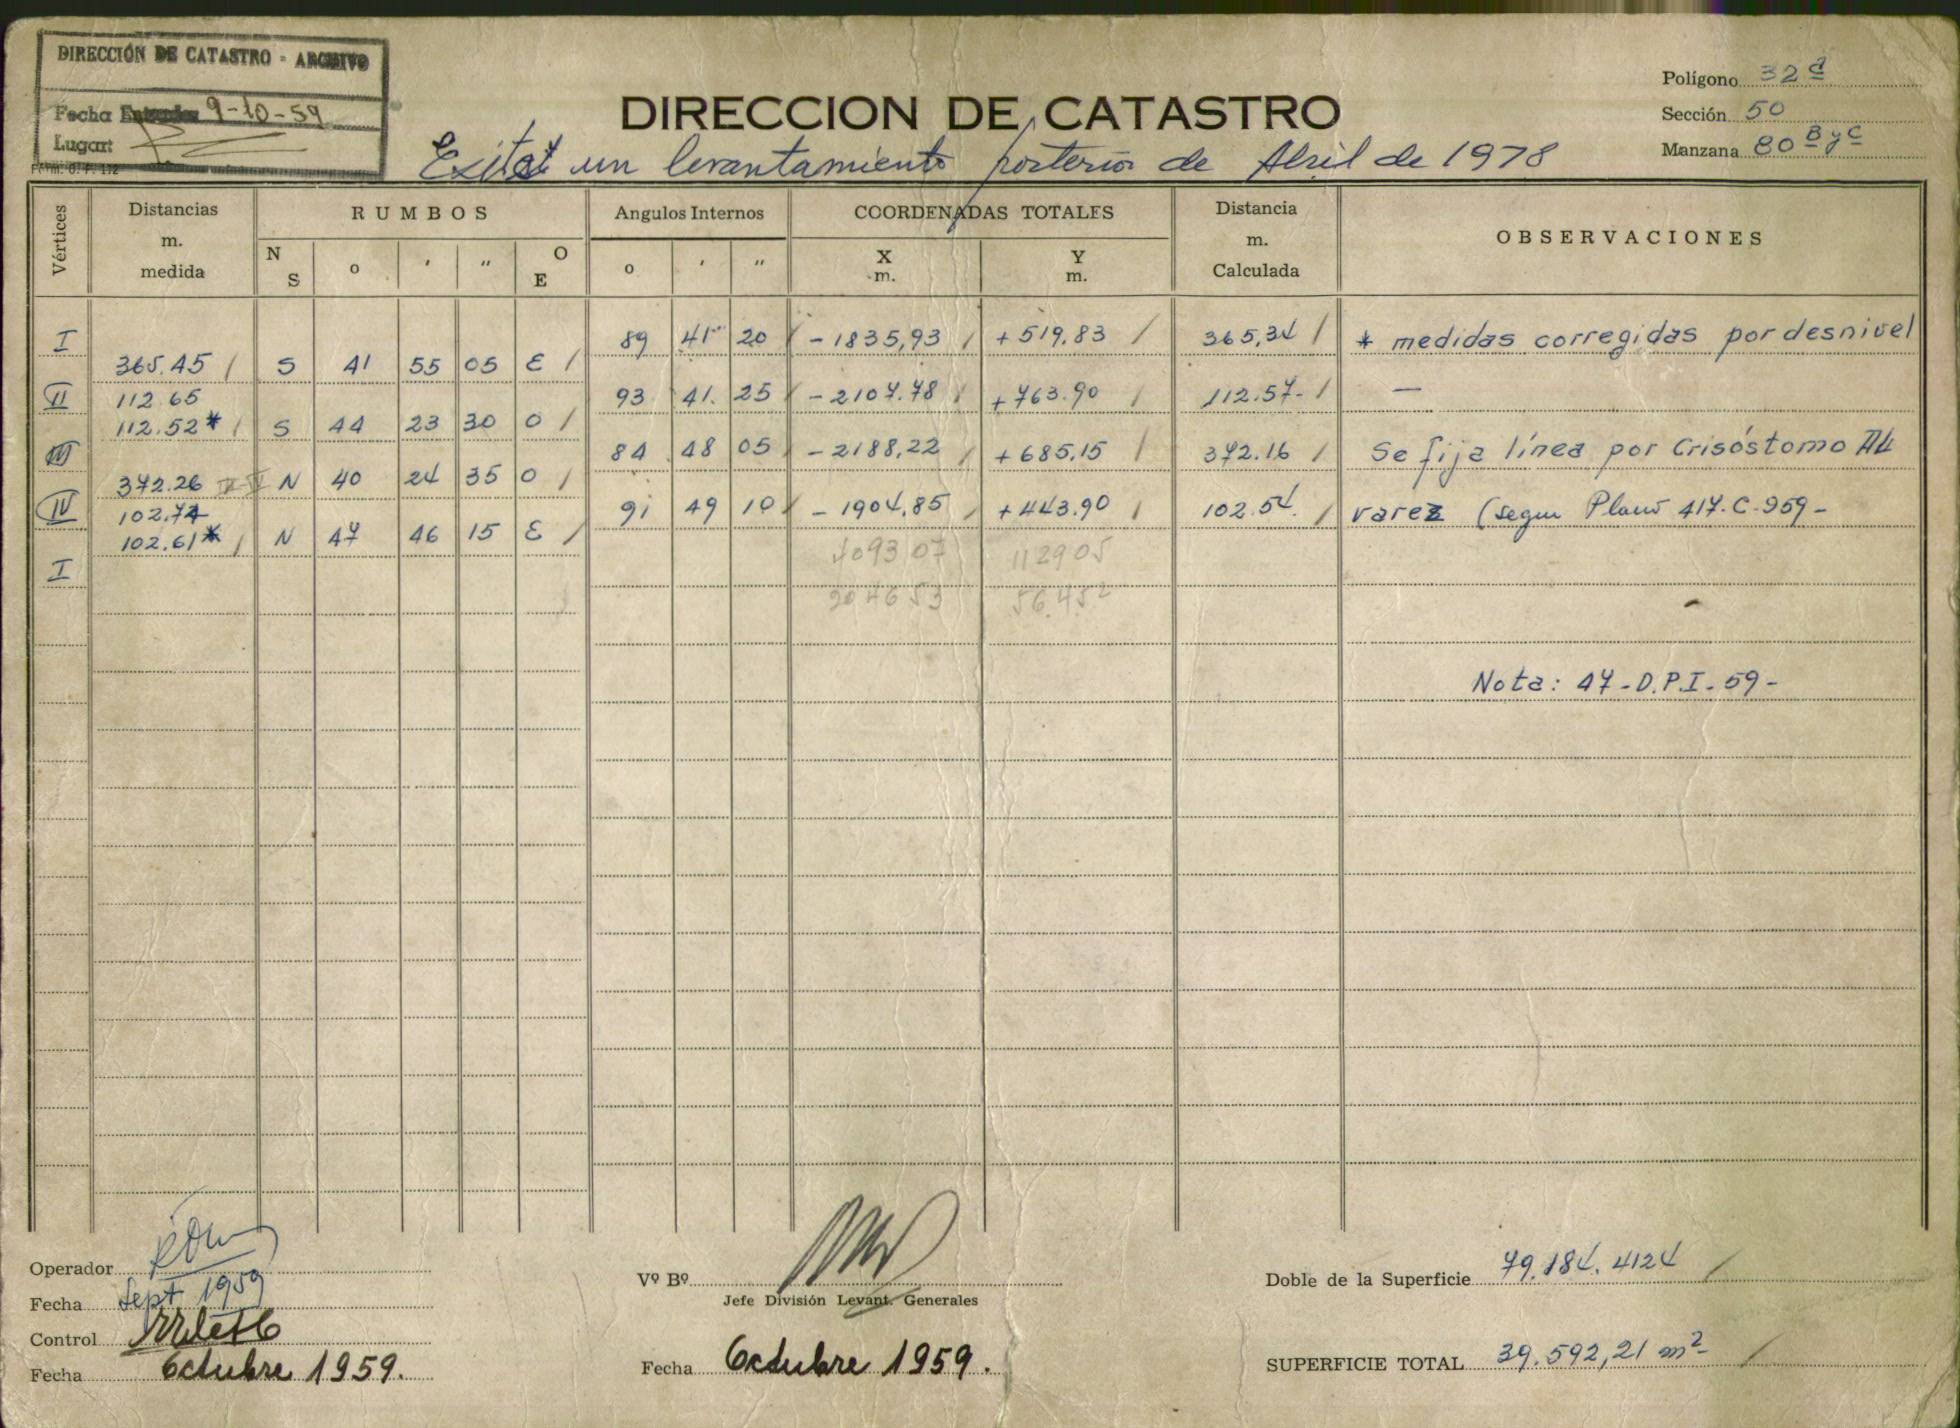 DIRECCIÓN DE CATASTRO - ARCHIVO
Fecha Entrada 9-10-59
Lugar:
Polígono 32 d
Sección 50
Manzana 80 B y C
DIRECCION DE CATASTRO
un levantamiento posterior de Abril de 1978
Vértices Distancias m. medida RUMBOS Angulos Internos COORDENADAS TOTALES Distancia m. Calculada OBSERVACIONES
N S o ' " O E o ' " X m. Y m.
I 89 41 20 - 1835,93 + 519.83 365,34 * medidas corregidas por desnivel
365.45 S 41 55 05 E
II 112.65 93 41 25 - 2107.78 + 763.90 112.57 -
112.52* S 44 23 30 O
III 84 48 05 - 2188,22 + 685,15 372.16 Se fija línea por Crisóstomo Al
372.26 N 40 24 35 O
IV 102.74 91 49 10 - 1904,85 + 443.90 102.54 varez (segun Plano 417.C.959-
102.61* N 47 46 15 E
4093 07 1129 05
I
2046 53 56.452
Nota: 47-D.P.I-59-
Operador
Fecha Sept 1959
Control
Fecha Octubre 1959.
Vº Bº
Jefe División Levant. Generales
Fecha Octubre 1959.
Doble de la Superficie 79.184.4124
SUPERFICIE TOTAL 39.592,21 m2